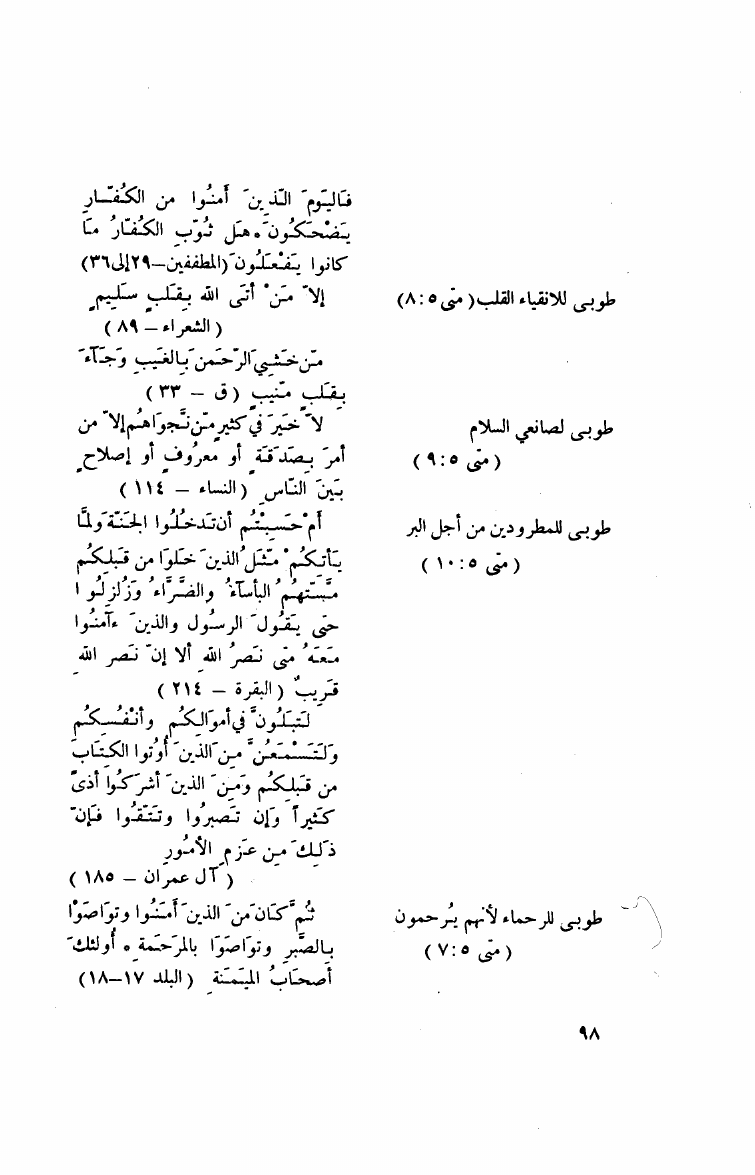 فاليَومَ الّذينَ أمنُوا من الكُفّارِ
يَضْحَكُونَ . هَل ثُوّبِ الكُفّارُ مَا
كانوا يَفْعَلُونَ (المطففين–٢٩إلى٣٦)
طوبى للانقياء القلب ( متّى ٥ : ٨)
إلاّ مَنْ أتَى الله بِقَلبٍ سَليمٍ
( الشعراء – ٨٩ )
مَن خَشِيَ الرّحمَن بِالغَيبِ وَجَآءَ
بِقَلبٍ مّنيبٍ ( ق – ٣٣ )
طوبى لصانعي السلام
( متّى ٥ : ٩ )
لاَ خَيرَ في كثيرٍ مِّن نَّجواهُم إلاّ من
أمرَ بِصَدَقَةٍ أو مَعرُوفٍ أو إصلاحٍ
بَينَ النّاسِ ( النساء – ١١٤ )
طوبى للمطرودين من أجل البر
( متّى ٥ : ١٠ )
أم حَسِبْتُم أن تَدخُلُوا الجَنّةَ وَلمَّا
يَأتكُمْ مّثَلُ الذينَ خَلَوا من قَبلِكُم
مَّسّتهُمُ البأسآءُ والضَّرَّاءُ وَزُلزِلُوا
حتى يَقُولَ الرسُول والذينَ ءَآمَنُوا
مَعَهُ متى نَصرُ اللهِ ألا إنّ نَصر اللهِ
قَرِيبٌ ( البقرة – ٢١٤ )
لَتبلَوُنَّ في أموَالكُم وأنْفُسِكُم
وَلَتَسْمَعُنَّ مِنَ الذينَ أُوتُوا الكِتَابَ
من قَبلِكُم وَمِنَ الذينَ أشرَكُوا أذىً
كَثيراً وَإن تَصبرُوا وتَتّقُوا فَإنّ
ذَلِكَ مِن عَزمِ الأمُورِ
( آل عمران – ١٨٥ )
طوبى للرحماء لأنهم يُرحمون
( متّى ٥ : ٧ )
ثُمَّ كَانَ مَنَ الذينَ أمَنُوا وتوَاصَوْا
بِالصَّبرِ وتوَاصَوَا بالمَرحَمةِ . أولئكَ
أصحَابُ الميَمَنة ( البلد ١٧–١٨ )
٩٨